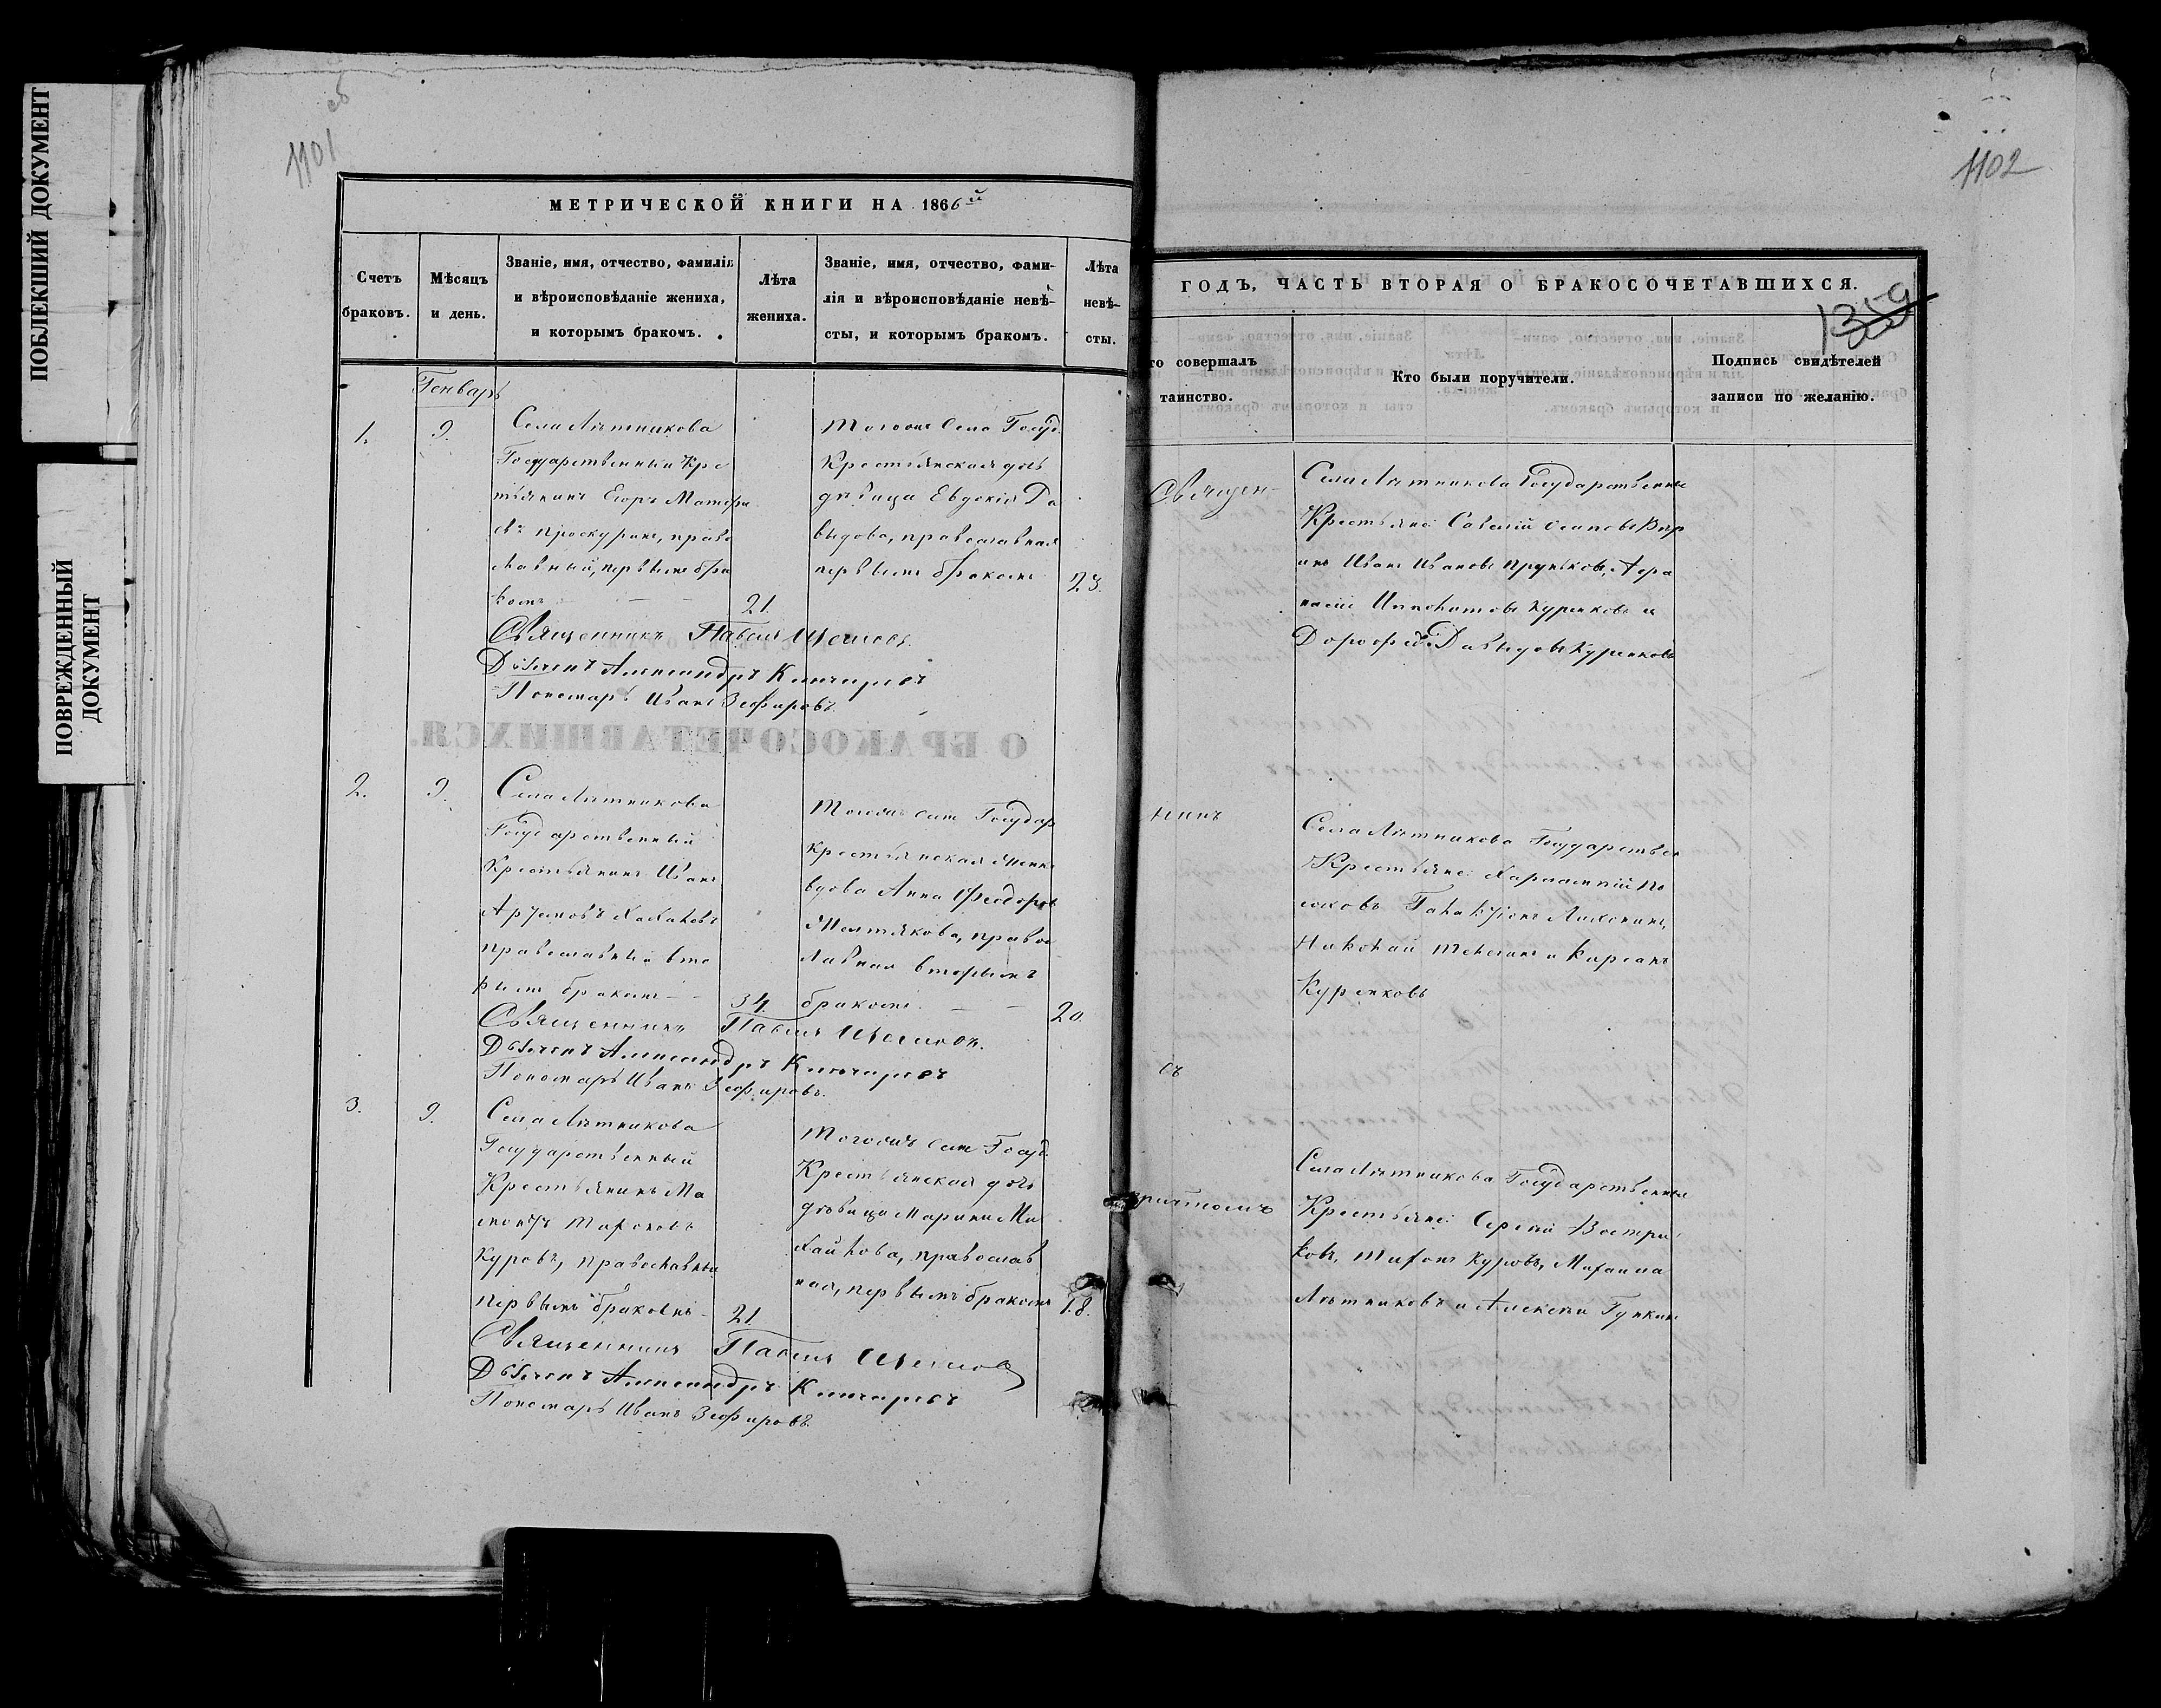 ПОБЛЕКШИЙ ДОКУМЕНТ
ПОВРЕЖДЕННЫЙ
ДОКУМЕНТ
1101
об
МЕТРИЧЕСКОЙ КНИГИ НА 1866й
Счетъ
браковъ.
Мѣсяцъ
и день.
Званіе, имя, отчество, фамилія
и вѣроисповѣданіе жениха,
и которымъ бракомъ.
Лѣта
жениха.
Званіе, имя, отчество, фами-
лія и вѣроисповѣданіе невѣ-
сты, и которымъ бракомъ.
Лѣта
невѣ-
сты.
Генварь
1.
9.
Села Лѣтникова
Государственный Кре
стьянинъ Егоръ
евъ Проскуринъ, право
славный, первымъ бра
комъ
21.
Тогоже села Госуд.
Крестьянская дочь
дѣвица Евдокія Да
выдова, православная
первымъ бракомъ
23.
Священникъ Павелъ
Дьячекъ Александръ
Пономарь Иванъ Зефировъ.
2.
9.
Села Лѣтникова
Государственный
Крестьянинъ Иванъ
православный вто
рымъ бракомъ
34.
Тогоже села Государ
крестьянская
вдова Анна Феодоров
православ
лавная вторымъ
бракомъ
20.
Священникъ Павелъ
Дьячекъ Александръ
Пономарь Иванъ Зефировъ.
3.
9.
Села Лѣтникова
Государственный
Крестьянинъ
Куровъ, православный
первымъ бракомъ
21.
Тогоже села Госуд.
Крестьянская дочь
дѣвица Марина Ми
хайлова, православ
ная, первымъ бракомъ
18.
Священникъ Павелъ
Дьячекъ Александръ
Пономарь Иванъ Зефировъ.
1102
ГОДЪ, ЧАСТЬ ВТОРАЯ О БРАКОСОЧЕТАВШИХСЯ.
1359
то совершалъ
таинство.
Кто были поручители.
Подпись свидѣтелей
записи по желанію.
Священ-
никъ
съ
причтомъ
Села Лѣтникова Государственные
Крестьяне: Савелій Осиповъ
Иванъ Ивановъ Аѳа
насій Ипполитовъ Куренковъ и
Дороѳей Давыдовъ Куренковъ
Села Лѣтникова Государствен
Крестьяне: Харлампій
Николай и Кирсанъ
Куренковъ
Села Лѣтникова Государственные
Крестьяне: Сергей Востри
ковъ, Тихонъ Куровъ, Михаила
Лѣтниковъ и Алексѣй